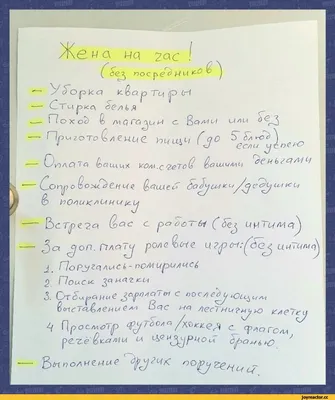 Жена на час!
(без посредников)
– Уборка квартиры
– Стирка белья
– Поход в магазин с Вами или без
– Приготовление пищи (до 5 блюд)
если успею
– Оплата ваших ком.счетов вашими деньгами
– Сопровождение вашей бабушки/дедушки
в поликлинику
– Встреча вас с работы (без интима)
– За доп. плату ролевые игры: (без интима)
1. Поругались-помирились
2. Поиск заначки
3. Отбирание зарплаты с последующим
выставлением Вас на лестничную клетку
4 Просмотр футбола/хоккея с флагом,
речёвками и цензурной бранью.
– Выполнение других поручений.
joyreactor.cc